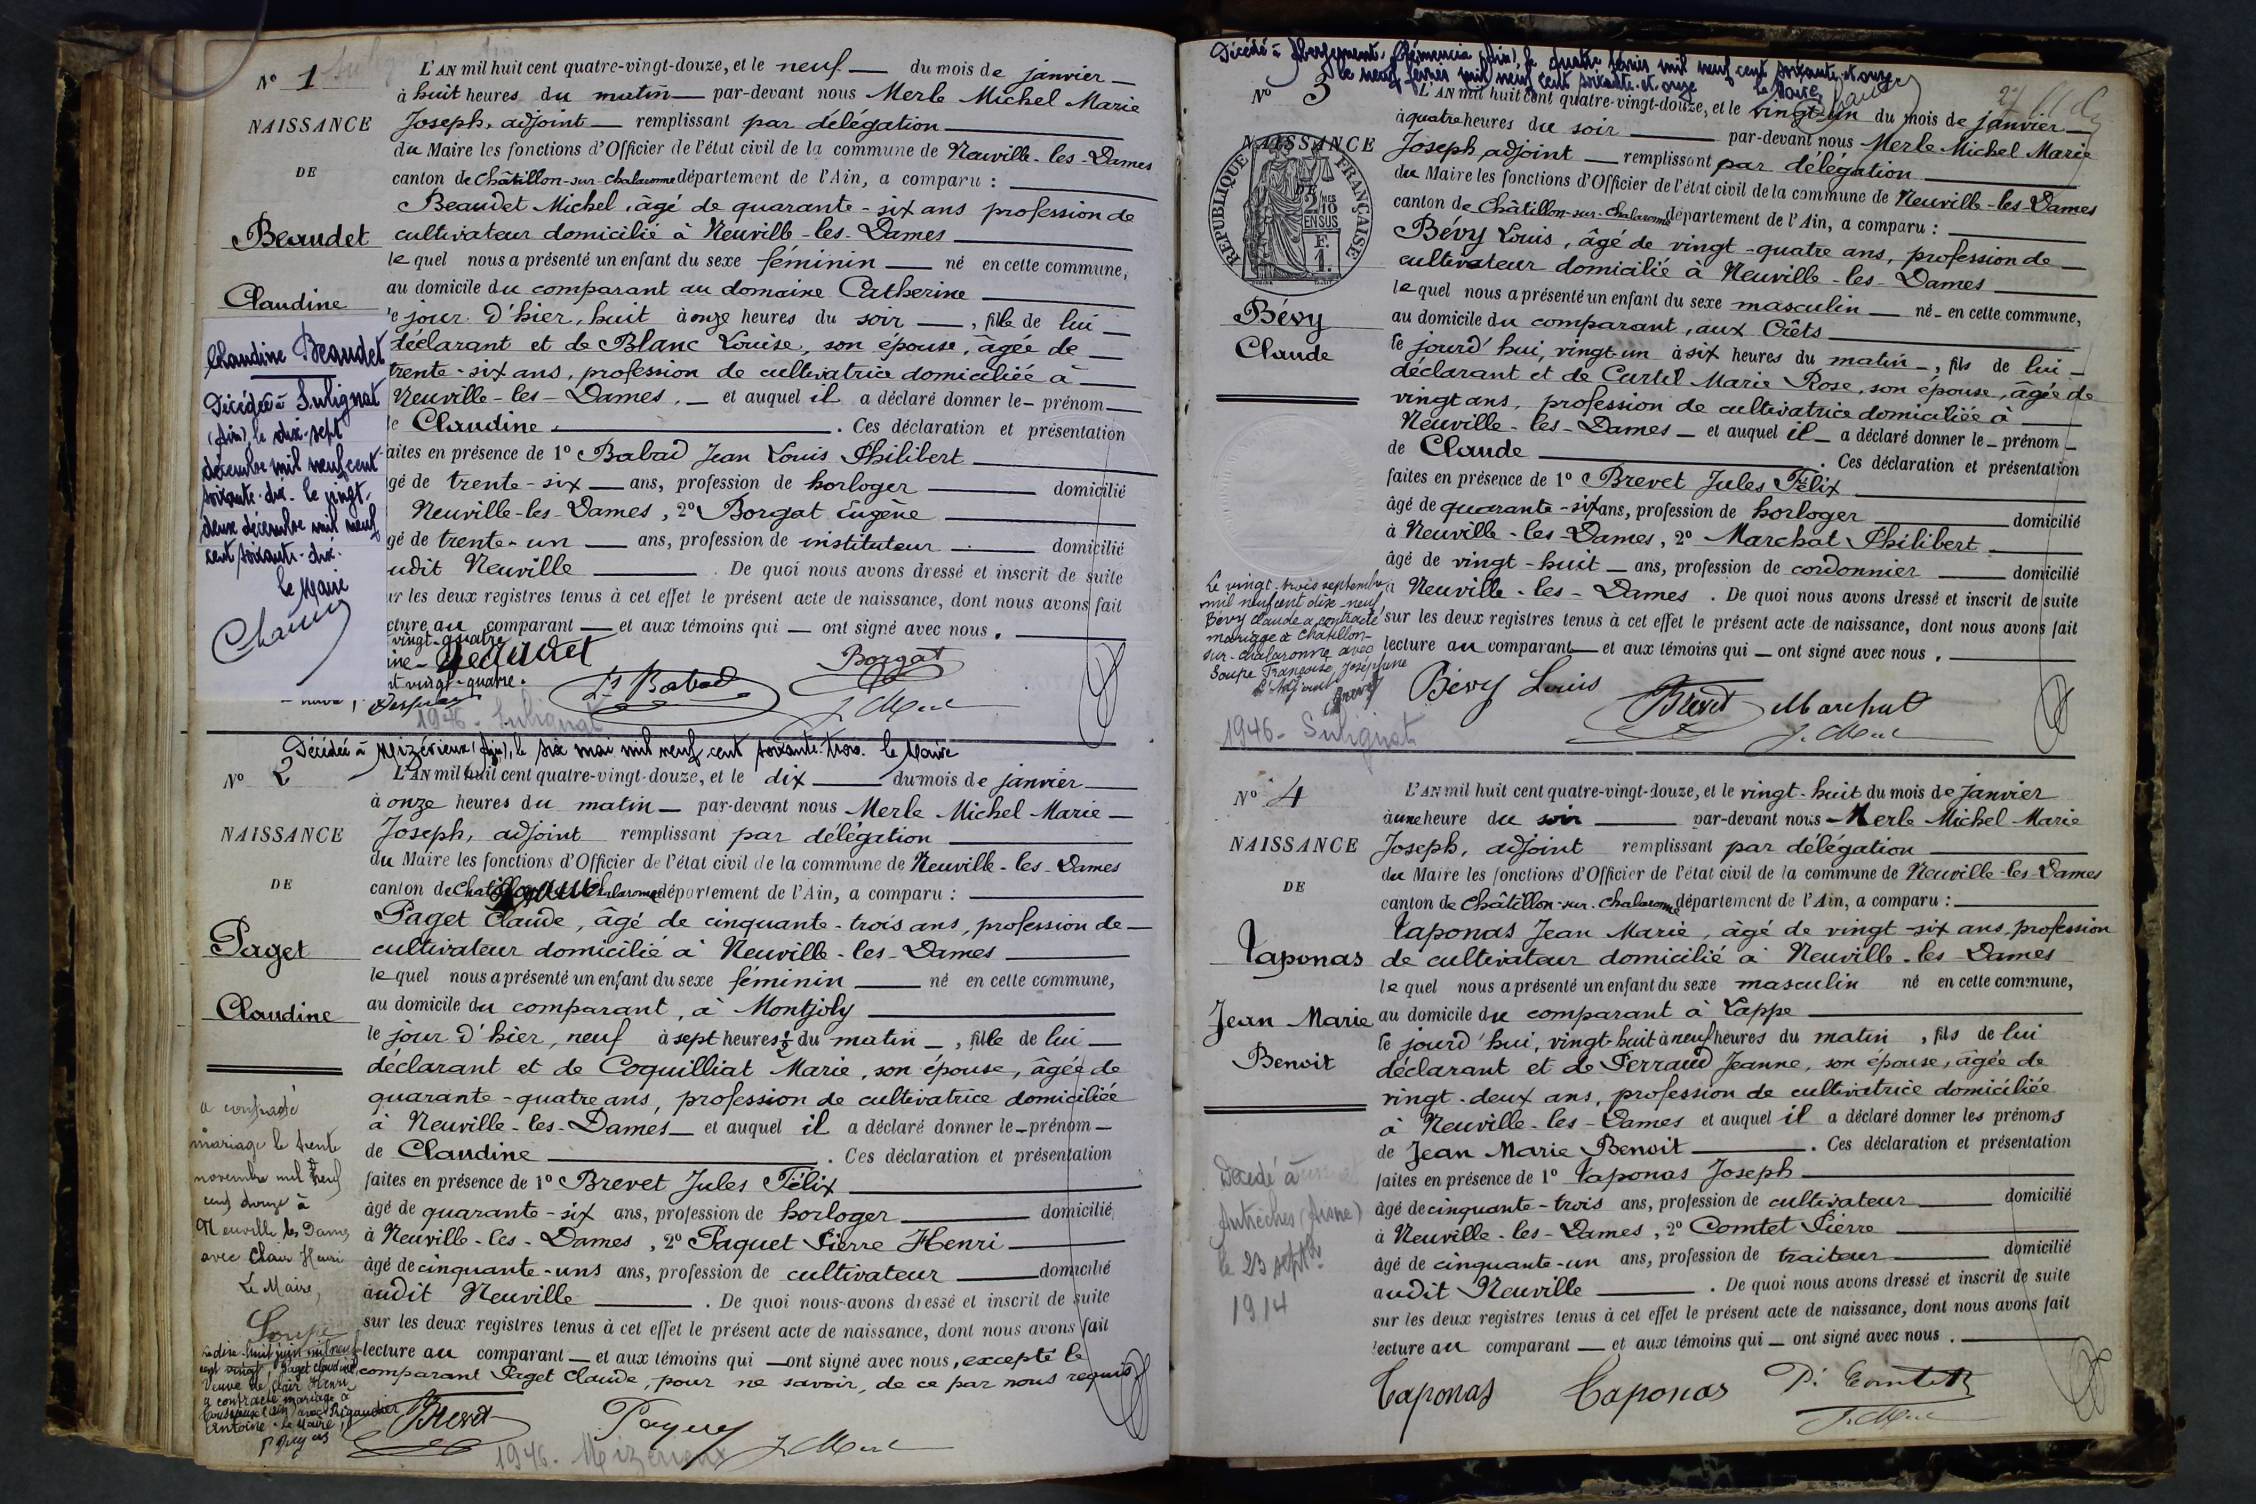 N° 1
NAISSANCE
DE
Beaudet
Claudine
L'AN mil huit cent quatre-vingt-douze, et le neuf du mois de janvier
à huit heures du matin par-devant nous Merle Michel Marie
Joseph, adjoint remplissant par délégation
du Maire les fonctions d'Officier de l'état civil de la commune de Neuville-les-Dames
canton de Châtillon-sur-Chalaronne département de l'Ain, a comparu :
Beaudet Michel, âgé de quarante-six ans profession de
cultivateur domicilié à Neuville-les-Dames
lequel nous a présenté un enfant du sexe féminin né en cette commune,
au domicile du comparant au domaine Catherine
le jour d'hier, huit à onze heures du soir, fille de lui
déclarant et de Blanc Louise, son épouse, âgée de
trente-six ans, profession de cultivatrice domiciliée à
Neuville-les-Dames, et auquel il a déclaré donner le prénom
de Claudine. Ces déclaration et présentation
aites en présence de 1° Babad Jean Louis Philibert
gé de trente-six ans, profession de horloger domicilié
Neuville-les-Dames, 2° Borgat Eugène
gé de trente-un ans, profession de instituteur domicilié
udit Neuville. De quoi nous avons dressé et inscrit de suite
ur les deux registres tenus à cet effet le présent acte de naissance, dont nous avons fait
cture au comparant et aux témoins qui ont signé avec nous.
Claudine Beaudet
Décédée à Sulignat
(Ain), le dix-sept
décembre mil neuf cent
soixante-dix. le vingt-
deux décembre mil neuf
cent soixante-dix.
le Maire
vingt-quatre
Beaudet
vingt-quatre.
Ls Babad
Borgat
J. Merle
1946. Sulignat
Décédée à Mizérieux (Ain), le six mai mil neuf cent soixante-trois. le Maire
N° 2
NAISSANCE
DE
Paget
Claudine
L'AN mil huit cent quatre-vingt-douze, et le dix du mois de janvier
à onze heures du matin par-devant nous Merle Michel Marie
Joseph, adjoint remplissant par délégation
du Maire les fonctions d'Officier de l'état civil de la commune de Neuville-les-Dames
canton de Chatillon-sur-Chalaronne département de l'Ain, a comparu :
Paget Claude, âgé de cinquante-trois ans, profession de
cultivateur domicilié à Neuville-les-Dames
lequel nous a présenté un enfant du sexe féminin né en cette commune,
au domicile du comparant, à Montjoly
le jour d'hier, neuf à sept heures ½ du matin, fille de lui
déclarant et de Coquilliat Marie, son épouse, âgée de
quarante-quatre ans, profession de cultivatrice domiciliée
à Neuville-les-Dames et auquel il a déclaré donner le prénom
de Claudine. Ces déclaration et présentation
faites en présence de 1° Brevet Jules Félix
âgé de quarante-six ans, profession de horloger domicilié
à Neuville-les-Dames, 2° Paquet Pierre Henri
âgé de cinquante-uns ans, profession de cultivateur domicilié
audit Neuville. De quoi nous avons dressé et inscrit de suite
sur les deux registres tenus à cet effet le présent acte de naissance, dont nous avons fait
lecture au comparant et aux témoins qui ont signé avec nous, excepté le
comparant Paget Claude, pour ne savoir, de ce par nous requis
a contracté
mariage le trente
novembre mil neuf
cent douze à
Neuville les Dames
avec Clair Henri
Le Maire,
Soupe
huit juin mil neuf
cent vingt, Paget Claudine
Veuve de Clair Henri
a contracté mariage à
avec Rigaudier
Antoine. Le Maire,
Brevet
Paquet
J. Merle
1946. Mizérieux
Décédé à Abergement-Clémencia (Ain), le quatre février mil neuf cent soixante et onze
le neuf février mil neuf cent soixante et onze le Maire,
N° 3
NAISSANCE
RÉPUBLIQUE FRANÇAISE
2/10 EN SUS
F. 1.
Bévy
Claude
L'AN mil huit cent quatre-vingt-douze, et le vingt-un du mois de janvier
à quatre heures du soir par-devant nous Merle Michel Marie
Joseph, adjoint remplissant par délégation
du Maire les fonctions d'Officier de l'état civil de la commune de Neuville-les-Dames
canton de Châtillon-sur-Chalaronne département de l'Ain, a comparu :
Bévy Louis, âgé de vingt-quatre ans, profession de
cultivateur domicilié à Neuville-les-Dames
lequel nous a présenté un enfant du sexe masculin né en cette commune,
au domicile du comparant, aux Crêts
le jourd'hui, vingt-un à six heures du matin, fils de lui
déclarant et de Curtil Marie Rose, son épouse, âgée de
vingt ans, profession de cultivatrice domiciliée à
Neuville-les-Dames et auquel il a déclaré donner le prénom
de Claude. Ces déclaration et présentation
faites en présence de 1° Brevet Jules Félix
âgé de quarante-six ans, profession de horloger domicilié
à Neuville-les-Dames, 2° Marchat Philibert
âgé de vingt-huit ans, profession de cordonnier domicilié
à Neuville-les-Dames. De quoi nous avons dressé et inscrit de suite
sur les deux registres tenus à cet effet le présent acte de naissance, dont nous avons fait
lecture au comparant et aux témoins qui ont signé avec nous.
Le vingt-trois septembre
mil neuf cent dix-neuf,
Bévy Claude a contracté
mariage à Châtillon-
sur-Chalaronne avec
Soupe Françoise Joséphine
Brevet
Bévy Louis
Brevet
Marchat
J. Merle
1946. Sulignat
N° 4
NAISSANCE
DE
Taponas
Jean Marie
Benoit
L'AN mil huit cent quatre-vingt-douze, et le vingt-huit du mois de janvier
à une heure du soir par-devant nous Merle Michel Marie
Joseph, adjoint remplissant par délégation
du Maire les fonctions d'Officier de l'état civil de la commune de Neuville-les-Dames
canton de Châtillon-sur-Chalaronne département de l'Ain, a comparu :
Taponas Jean Marie, âgé de vingt-six ans, profession
de cultivateur domicilié à Neuville-les-Dames
lequel nous a présenté un enfant du sexe masculin né en cette commune,
au domicile du comparant à Lappe
le jourd'hui, vingt-huit à neuf heures du matin, fils de lui
déclarant et de Perraud Jeanne, son épouse, âgée de
vingt-deux ans, profession de cultivatrice domiciliée
à Neuville-les-Dames et auquel il a déclaré donner les prénoms
de Jean Marie Benoit. Ces déclaration et présentation
faites en présence de 1° Taponas Joseph
âgé de cinquante-trois ans, profession de cultivateur domicilié
à Neuville-les-Dames, 2° Comtet Pierre
âgé de cinquante-un ans, profession de traiteur domicilié
audit Neuville. De quoi nous avons dressé et inscrit de suite
sur les deux registres tenus à cet effet le présent acte de naissance, dont nous avons fait
lecture au comparant et aux témoins qui ont signé avec nous.
Décédé à
Autrèches (Aisne)
le 23 septbre
1914
Taponas
Taponas
P. Comtet
J. Merle